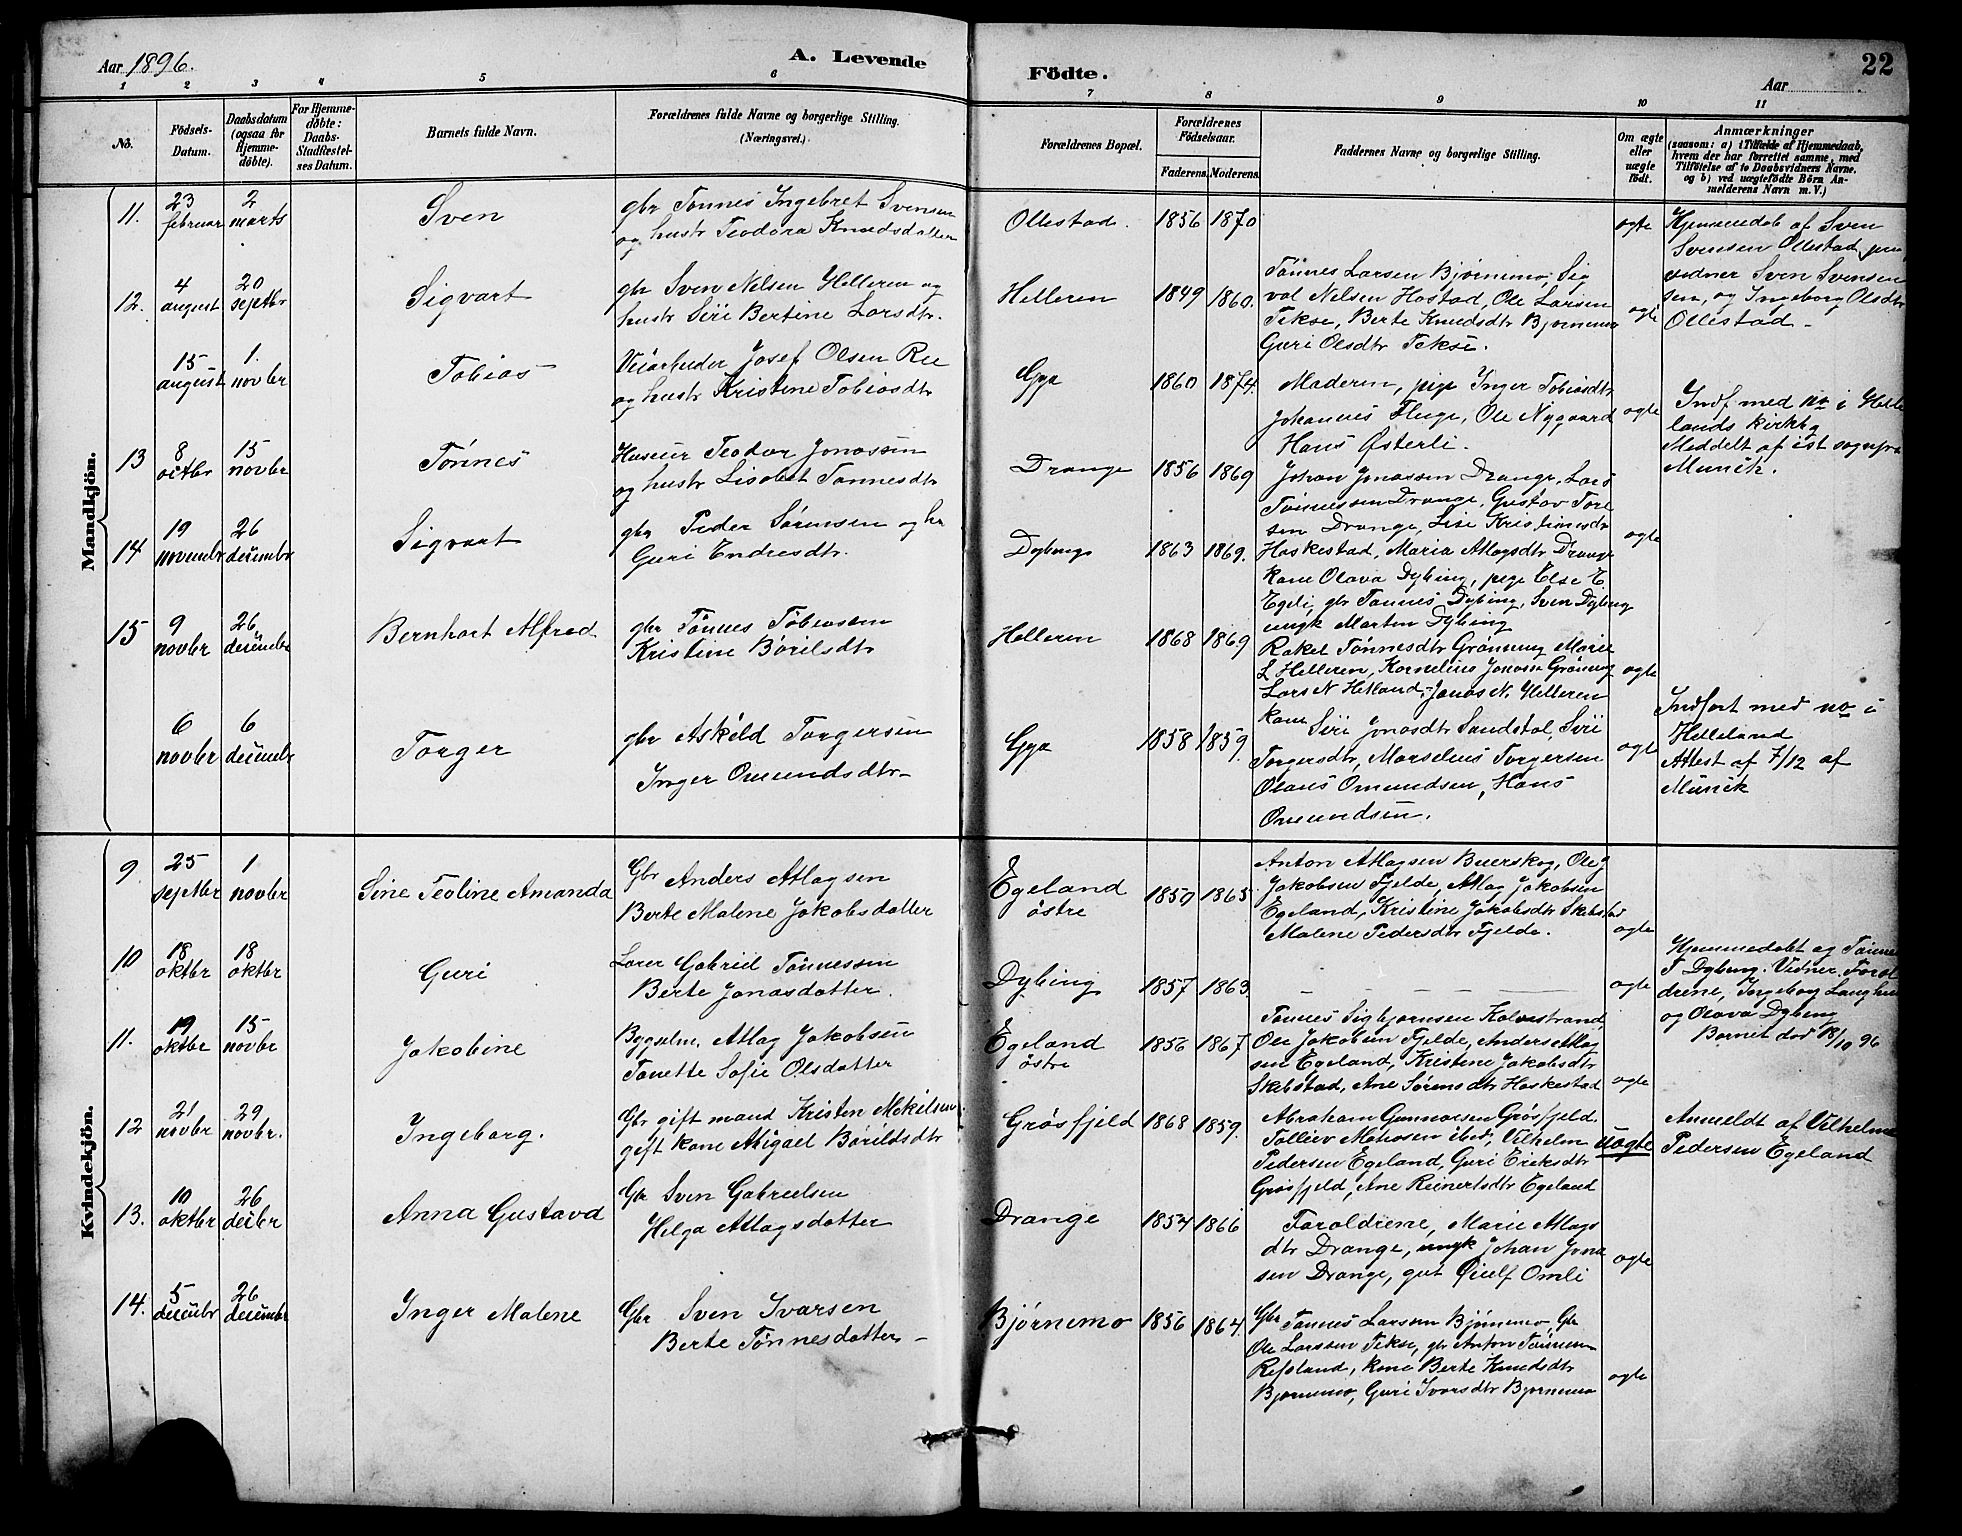 Aar 1896.
A. Levende
Födte.
Aar
22
1 2 3 4 5 6 7 8 9 10 11
No.
Födsels-Datum.
Daabsdatum (ogsaa for Hjemmedöbte).
For Hjemmedöbte: Daabs-Stadfæstelses Datum.
Barnets fulde Navn.
Forældrenes fulde Navne og borgerlige Stilling.
(Næringsvei.)
Forældrenes Bopæl.
Forældrenes Födselsaar.
Faderens. Moderens.
Faddernes Navne og borgerlige Stilling.
Om ægte eller uægte födt.
Anmærkninger
(saasom: a) i Tilfælde af Hjemmedaab, hvem der har forrettet samme, med Tilföielse af to Daabsvidners Navne, og b) ved uægtefödte Börn Anmelderens Navn m. V.)
Mandkjön.
11. 23 februar 2 marts Sven
gbr Tønnes Ingebret Svensen
og hustr Teodora Knudsdatter
Ollestad. 1856 1870 ægte
Hjemmedøb af Sven
Svensen Ollestad
vidner Sven Svensen
sen, og Ingeborg Olsdtr
Ollestad.
12. 4 august 20 septbr Sigvart
gbr Sven Nelsen Helleren og
hustr Siri Bertine Larsdtr.
Helleren 1849 1860.
Tønnes Larsen Bjørnimo, Sig
val Nelsen Hostad, Ole Larsen
Tekse, Berte Knudsdtr Bjørnimo
Guri Olsdtr Tekse.
ægte
15 august 1. novbr Tobias
Veiarbeider Josef Olsen Ree
og hustr Kristine Tobiasdtr
Gya 1860 1874.
Moderen, pige Inger Tobiasdtr
Johannes Fluge, Ole Nygaard
Hans Østerli.
ægte
Indf. med no i Helle
lands kirkbg
Meddelt af ist sognepr
Munch.
13 8 octbr 15 novbr Tønnes
Husm Teodor Jonassen
og hustr Lisabet Tønnesdtr
Drange 1856 1869
Johan Jonassen Drange, Lars
Tønnessen Drange, Gustav Tore
sen Drange, Lise Kristiansdtr
Haskestad, Maria Atlagsdtr Drange
ægte
14 19 novembr 26 decembr Sigvart
gbr Peder Sørensen og hr
Guri Endresdtr.
Dybing 1863 1869.
kone Olava Dybing, pige Else E
Egeli, gbr Tønnes Dybing, Sven Dybing
ungk Martin Dybing
15 9 novbr 26 decembr Bernhart Alfred
gbr Tønnes Tobiassen
Kristine Børildsdtr
Helleren 1868 1869
Rakel Tønnesdtr Grønning Marie
L Helleren, Kornelius Jonasse Grønning
Lars N Hetland, Jonas N. Helleren
ægte
6 novbr 6 decembr Torger
gbr Askild Torgersen
Inger Omundsdtr
Gya 1858 1859.
kone Siri Jonasdtr Sandstøl, Siri
Torgersdtr, Marselius Torgersen
Olaus Omundsen, Hans
Omundsen.
ægte
Indført med no i
Helleland
Attest af 7/12 af
Munch
Kvindekjön.
9. 25 septbr 1 novbr Sine Teoline Amanda
Gbr Anders Atlagsen
Berte Malene Jakobsdatter
Egeland østre 1859 1865
Anton Atlagsen Buerskog, Ole
Jakobsen Fjelde, Atlag Jakobsen
Egeland, Kristine Jakobsdtr Skibstad
Malene Pedersdtr Fjelde.
ægte
10 18 oktbr 18 oktbr Guri
Lærer Gabriel Tønnessen
Berte Jonasdatter.
Dybing 1857 1863. ægte
Hjemmedøbt af Tønnes
T Dybing. Vidner. Foræl
drene, Ingeborg
og Olava Dybing
Barnet død 18/10 96
11. 19 oktbr 15 novbr Jakobine
Bygselm. Atlag Jakobsen
Tonette Sofie Olsdatter
Egeland østre 1856 1867
Tønnes Sigbjørnsen Kalvestrand,
Ole Jakobsen Fjelde, Anders Atlag
sen Egeland, Kristine Jakobsdtr
Skibstad, Ane Sørensdtr Haskestad
ægte
12 21 novbr 29 novbr. Ingeborg.
Gbr gift mand Kristen Mekilsen
gift kone Abigael Børildsdtr
Grøsfjeld 1868 1859.
Abraham Gunnarsen Grøsfjeld
Tolliev Mathisen ibid, Vilhelm
Pedersen Egeland, Guri Eriksdtr
Grøsfjeld, Ane Reinertsdtr Egeland
uægte
Anmeldt af Vilhelm
Pedersen Egeland
13. 10 oktbr 26 decbr Anna Gustava
Gbr Sven Gabrielsen
Helga Atlagsdatter
Drange 1854 1866
Forældrene, Marie Atlags
dtr Drange, ungk Johan Jona
sen Drange, gut Øiulf Omli
ægte
14. 5 decembr 26 decembr Inger Malene
Gbr Sven Ivarsen
Berte Tønnesdatter
Bjørnemo 1856 1864.
Gbr Tønnes Larsen Bjørnemo, Gbr
Ole Larssen Tekse, gbr Anton Tønnessen
Refsland, kone Berte Knudsdtr
Bjørnemo, Guri Ivarsdtr Bjørnemo
ægte